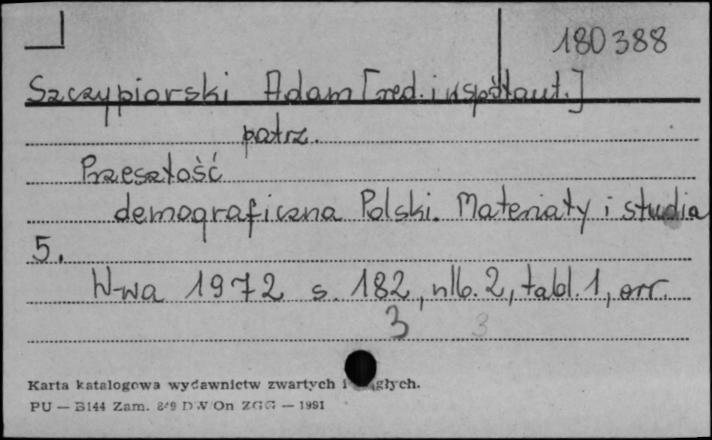 180388
Szczypiorski Adam [red. i współaut.]
patrz.
Przeszłość
demograficzna Polski. Materiały i studia
5.
W-wa 1972 s. 182, nlb. 2, tabl. 1, err.
3 3
Karta katalogowa wydawnictw zwartych i
PU — B144 Zam. DW/On ZGG — 1991